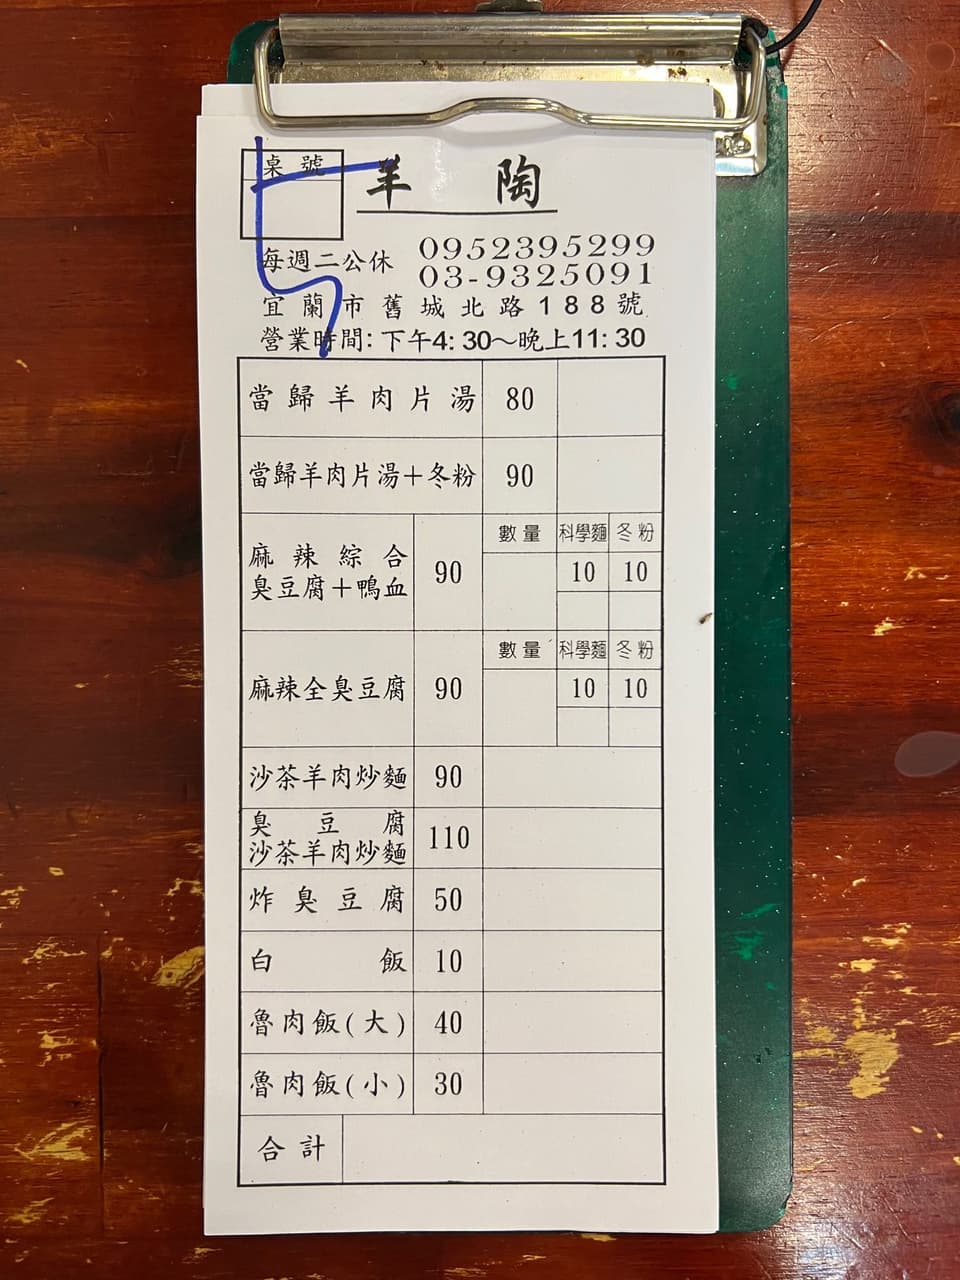 桌號
羊 陶
每週二公休 0952395299
03-9325091
宜蘭市舊城北路188號
營業時間:下午4:30~晚上11:30
當歸羊肉片湯 80
當歸羊肉片湯+冬粉 90
麻辣綜合
臭豆腐+鴨血 90 數量 科學麵 冬粉
10 10
麻辣全臭豆腐 90 數量 科學麵 冬粉
10 10
沙茶羊肉炒麵 90
臭豆腐
沙茶羊肉炒麵 110
炸臭豆腐 50
白飯 10
魯肉飯(大) 40
魯肉飯(小) 30
合計